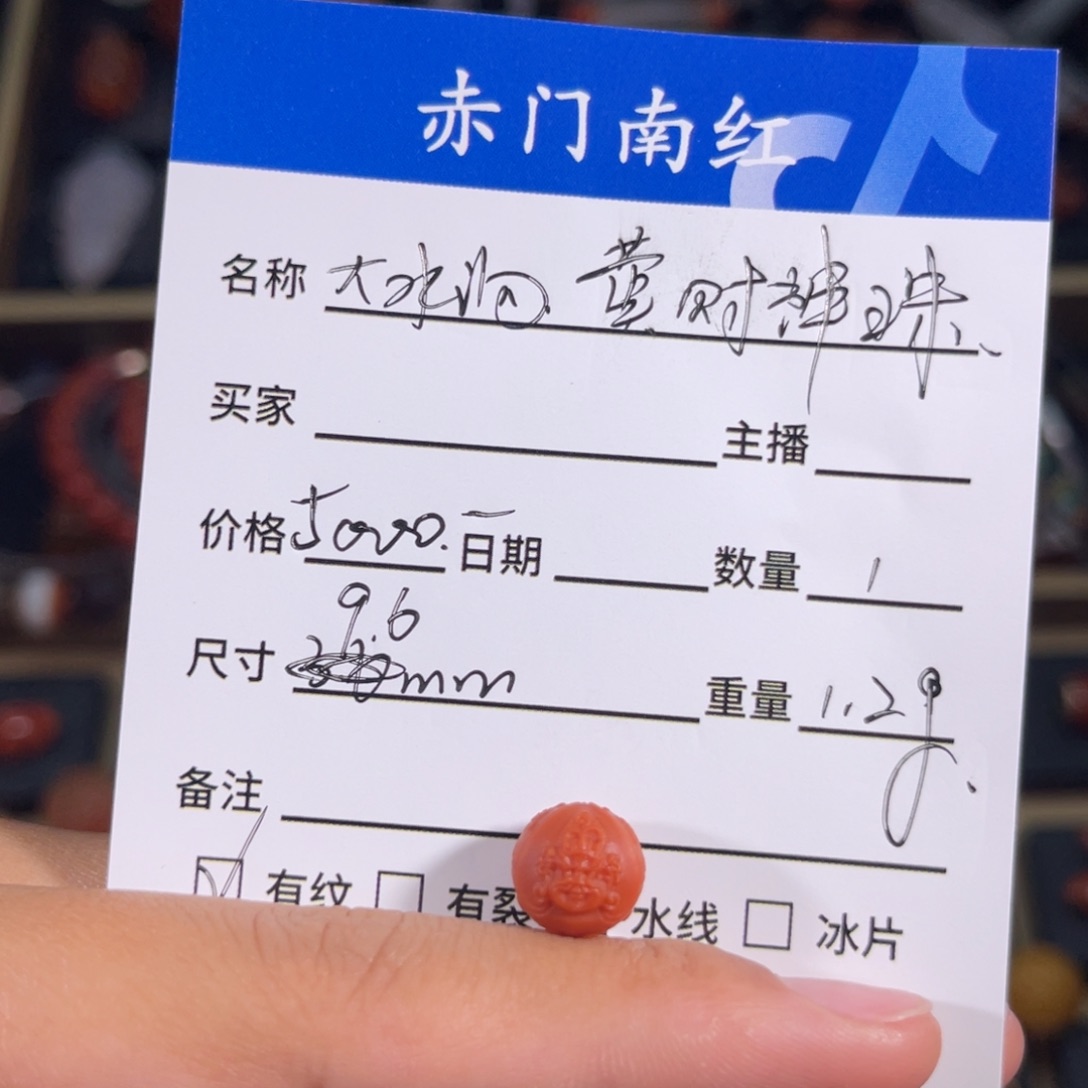 赤门南红
名称 大水沟 黄财神珠、
买家 主播
价格 5000. 日期 数量 1
9.6
尺寸 mm 重量 1.2g.
备注
有纹 有裂 水线 冰片